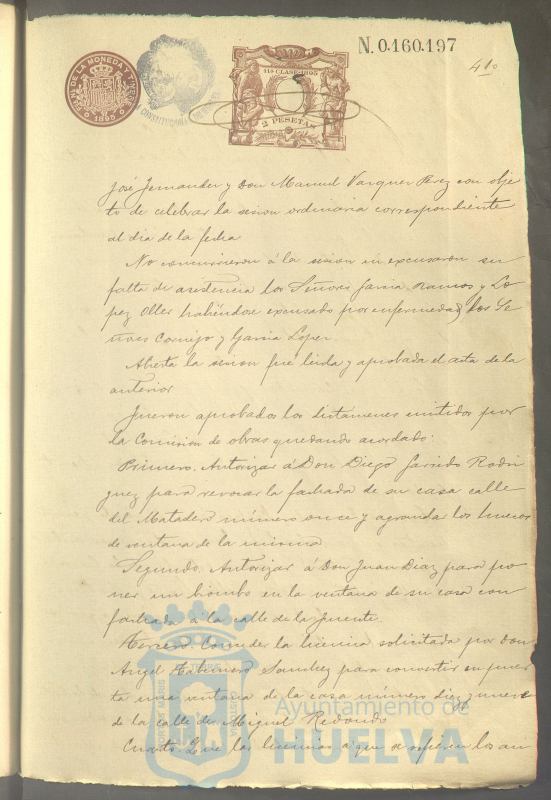 N. 0.160.197
41
11ª CLASE 1895
2 PESETAS
1895
José Fernandez y Don Manuel Vazquez Perez con obje
to de celebrar la sesion ordinaria correspondiente
al dia de la fecha
No concurrieron á la sesion ni excusaron su
falta de asistencia los Señores Garcia Ramos y Lo
pez Oller habiéndose excusado por enfermedad los Se
ñores Cornejo y Garcia Lopez
Abierta la sesion fué leida y aprobada el acta de la
anterior
Fueron aprobados los dictamenes emitidos por
la Comision de obras quedando acordado:
Primero. Autorizar á Don Diego Garrido Rodri
guez para revocar la fachada de su casa calle
del Matadero número once y agrandar los huecos
de ventana de la misma
Segundo. Autorizar á Don Juan Diaz para po
ner un bombo en la ventana de su casa con
fachada á la calle de la Fuente.
Tercero. Conceder la licencia solicitada por Don
Angel Sanchez para convertir en puer
ta una ventana de la casa número diez y nueve
de la calle de Miguel Redondo
Cuarto. Que las licencias á que se refieren los an
Ayuntamiento de
HUELVA